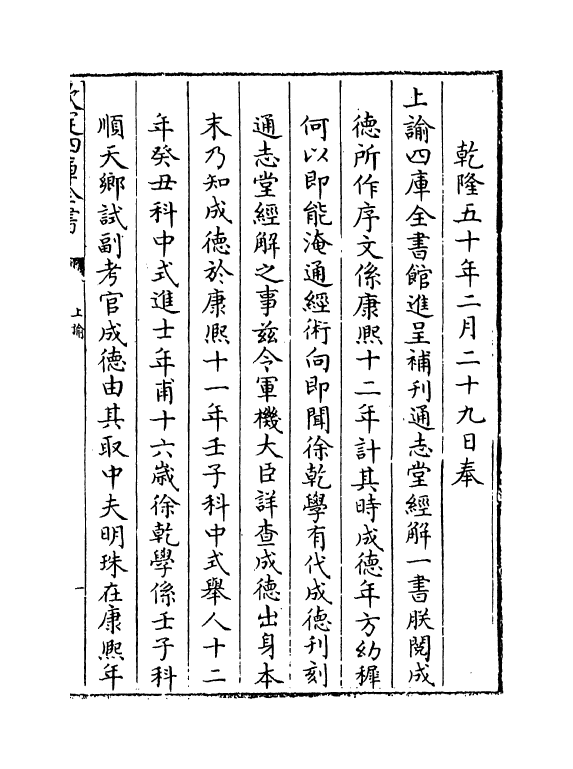 乾隆五十年二月二十九日奉
上諭四庫全書館進呈補刊通志堂經解一書朕閱成
德所作序文係康熙十二年計其時成德年方幼穉
何以即能淹通經術向即聞徐乾學有代成德刊刻
通志堂經解之事兹令軍機大臣詳查成德出身本
末乃知成德於康熙十一年壬子科中式舉人十二
年癸丑科中式進士年甫十六歲徐乾學係壬子科
順天鄉試副考官成德由其取中夫明珠在康熙年
欽定四庫全書
上諭
一